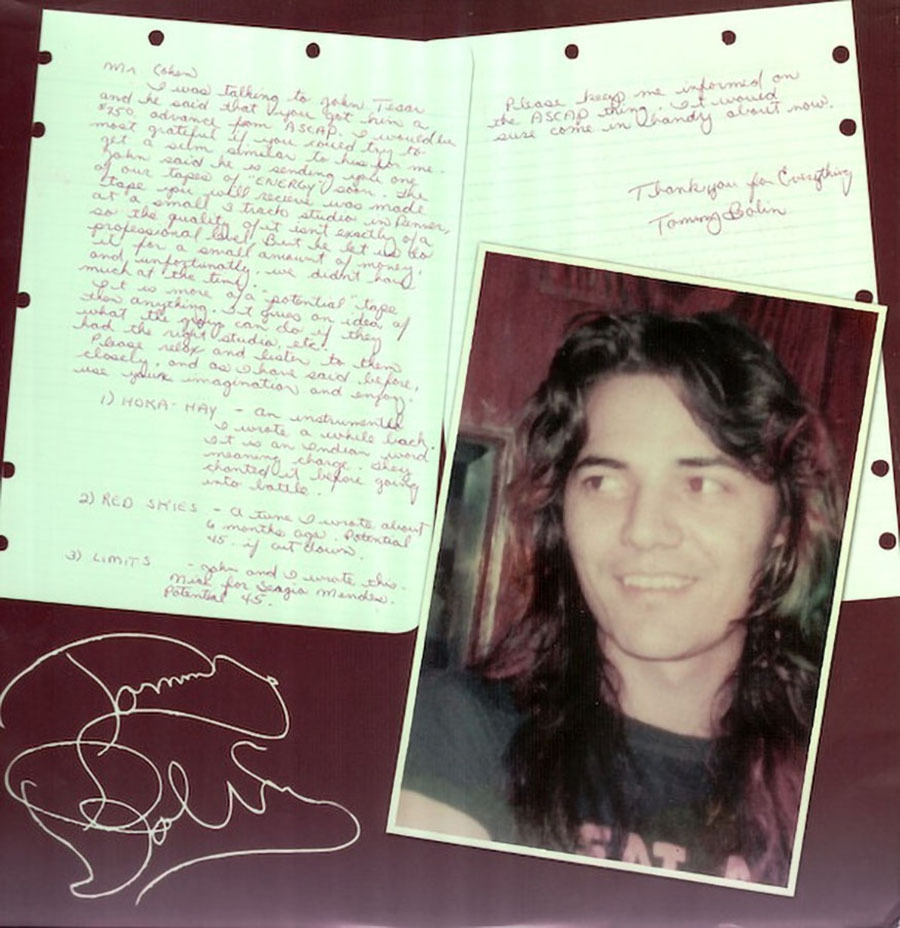 Mr. Cohen
I was talking to John Tesar
and he said that you got him a
$250. advance from ASCAP. I would be
most grateful if you could try to
get a sum similar to his for me.
John said he is sending you one
of our tapes of "ENERGY" soon. The
tape you will recieve was made
at a small 3 track studio in Denver,
so the quality of it isn't exactly of a
professional level. But he let us do
it for a small amount of money,
and, unfortunatly, we didn't have
much at the time.
It is more of a "potential" tape
then anything. It gives an idea of
what the group can do if they
had the right studio, etc.
Please relax and listen to them
closely, and as I have said before,
use your imagination and enjoy.
1) HOKA-HAY - An instrumental
I wrote a while back.
It is an Indian word
meaning charge. They
chanted it before going
into battle.
2) RED SKIES - A tune I wrote about
6 months ago. Potential
45. if cut down.
3) LIMITS - John and I wrote this.
Nice for Seagio Mendes.
Potential 45.
Please keep me informed on
the ASCAP thing. It would
sure come in handy about now.
Thank you for Everything
Tommy Bolin
Tommy
Bolin